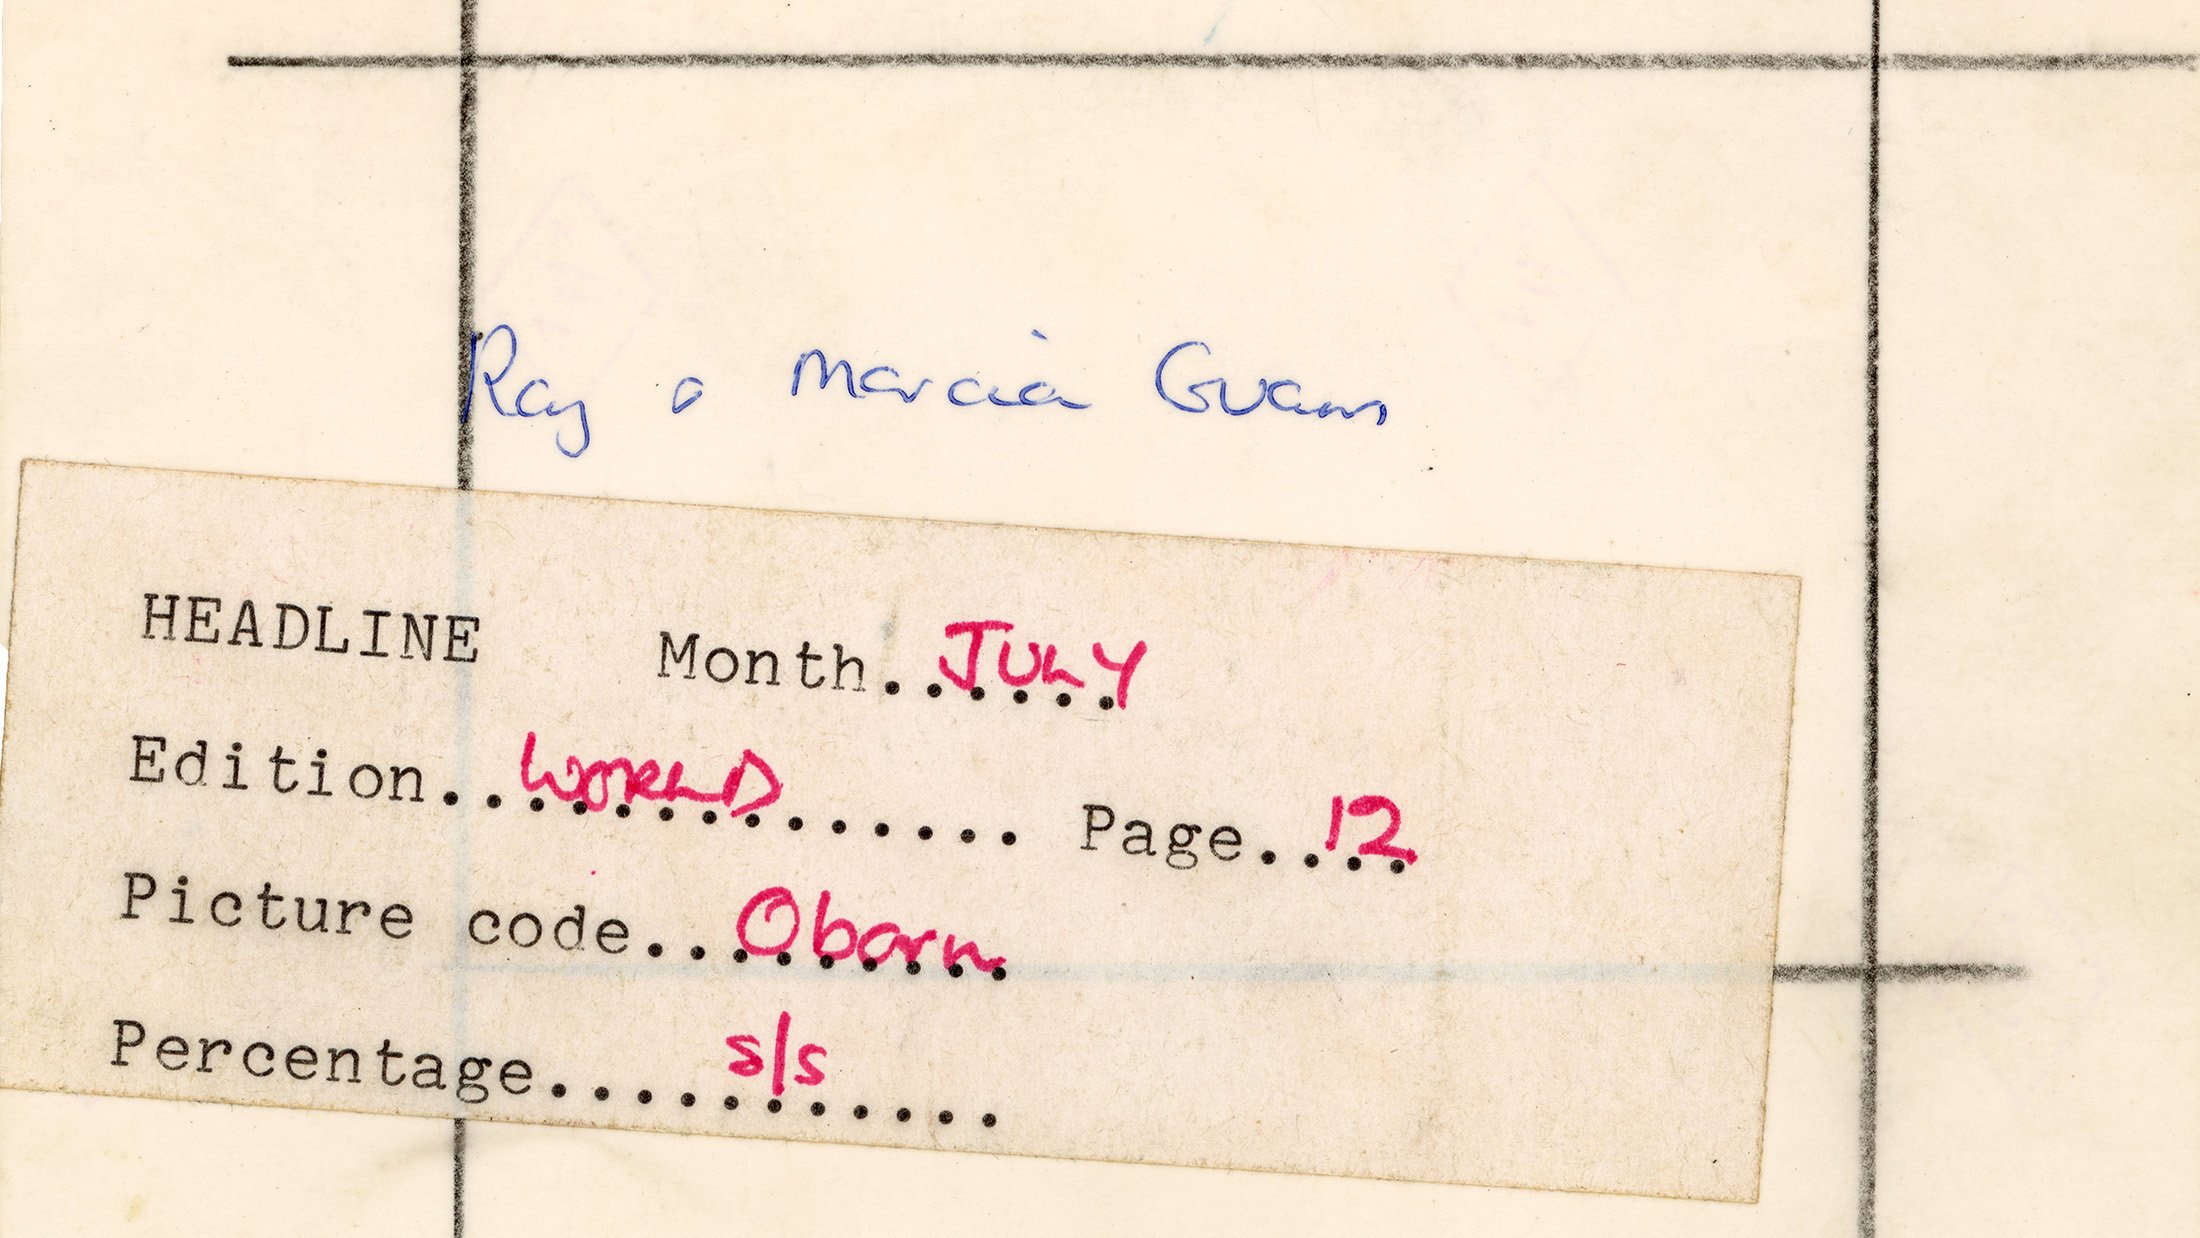 Ray & Marcia
HEADLINE Month..JULY
Edition..WORLD....... Page..12
Picture code..Oborn
Percentage....s/s.....